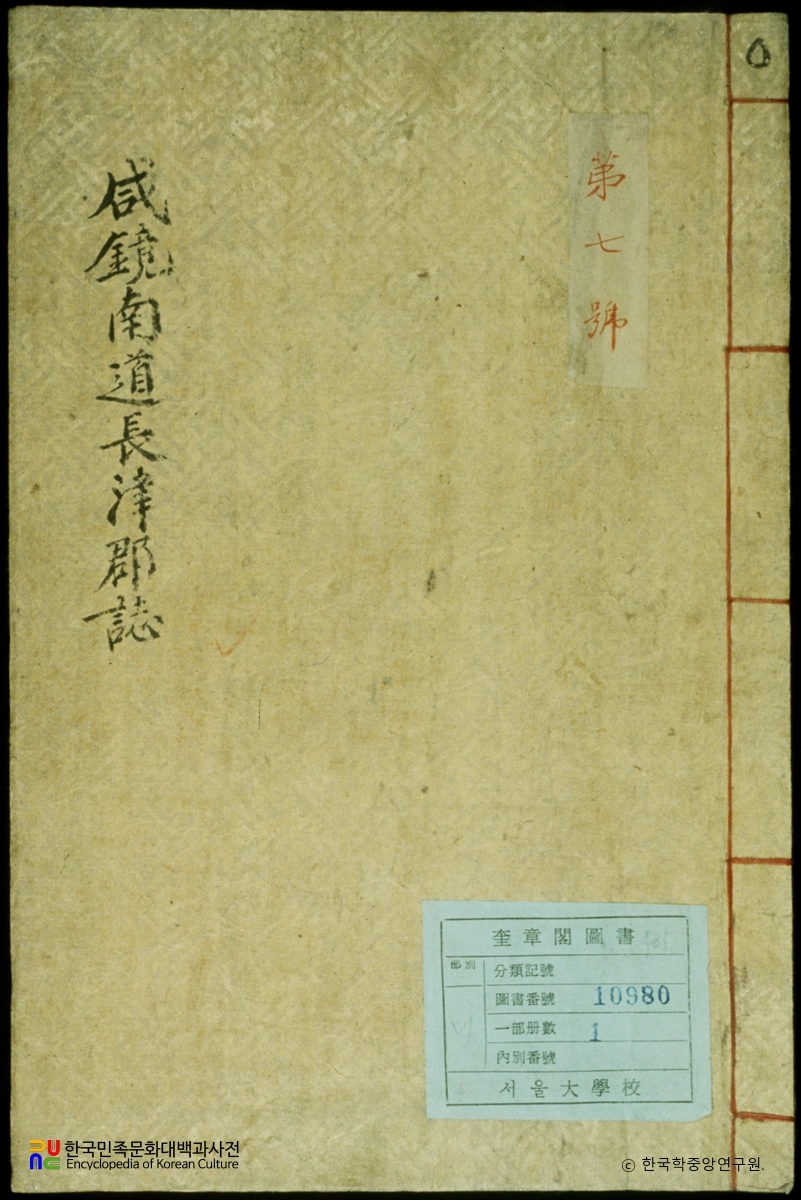 咸鏡南道長津郡誌
第七號
奎章閣圖書
部別
分類記號
圖書番號 10980
一部册數 1
內別番號
서울大學校
한국민족문화대백과사전
Encyclopedia of Korean Culture
© 한국학중앙연구원.